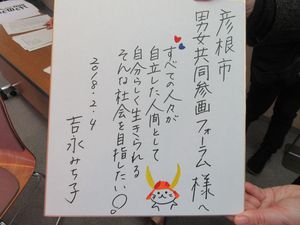 彦根市
男女共同参画フォーラム様へ
すべての人々が
自立した人間として
自分らしく生きられる
そんな社会を目指したい。
2018.2.4
吉永みち子